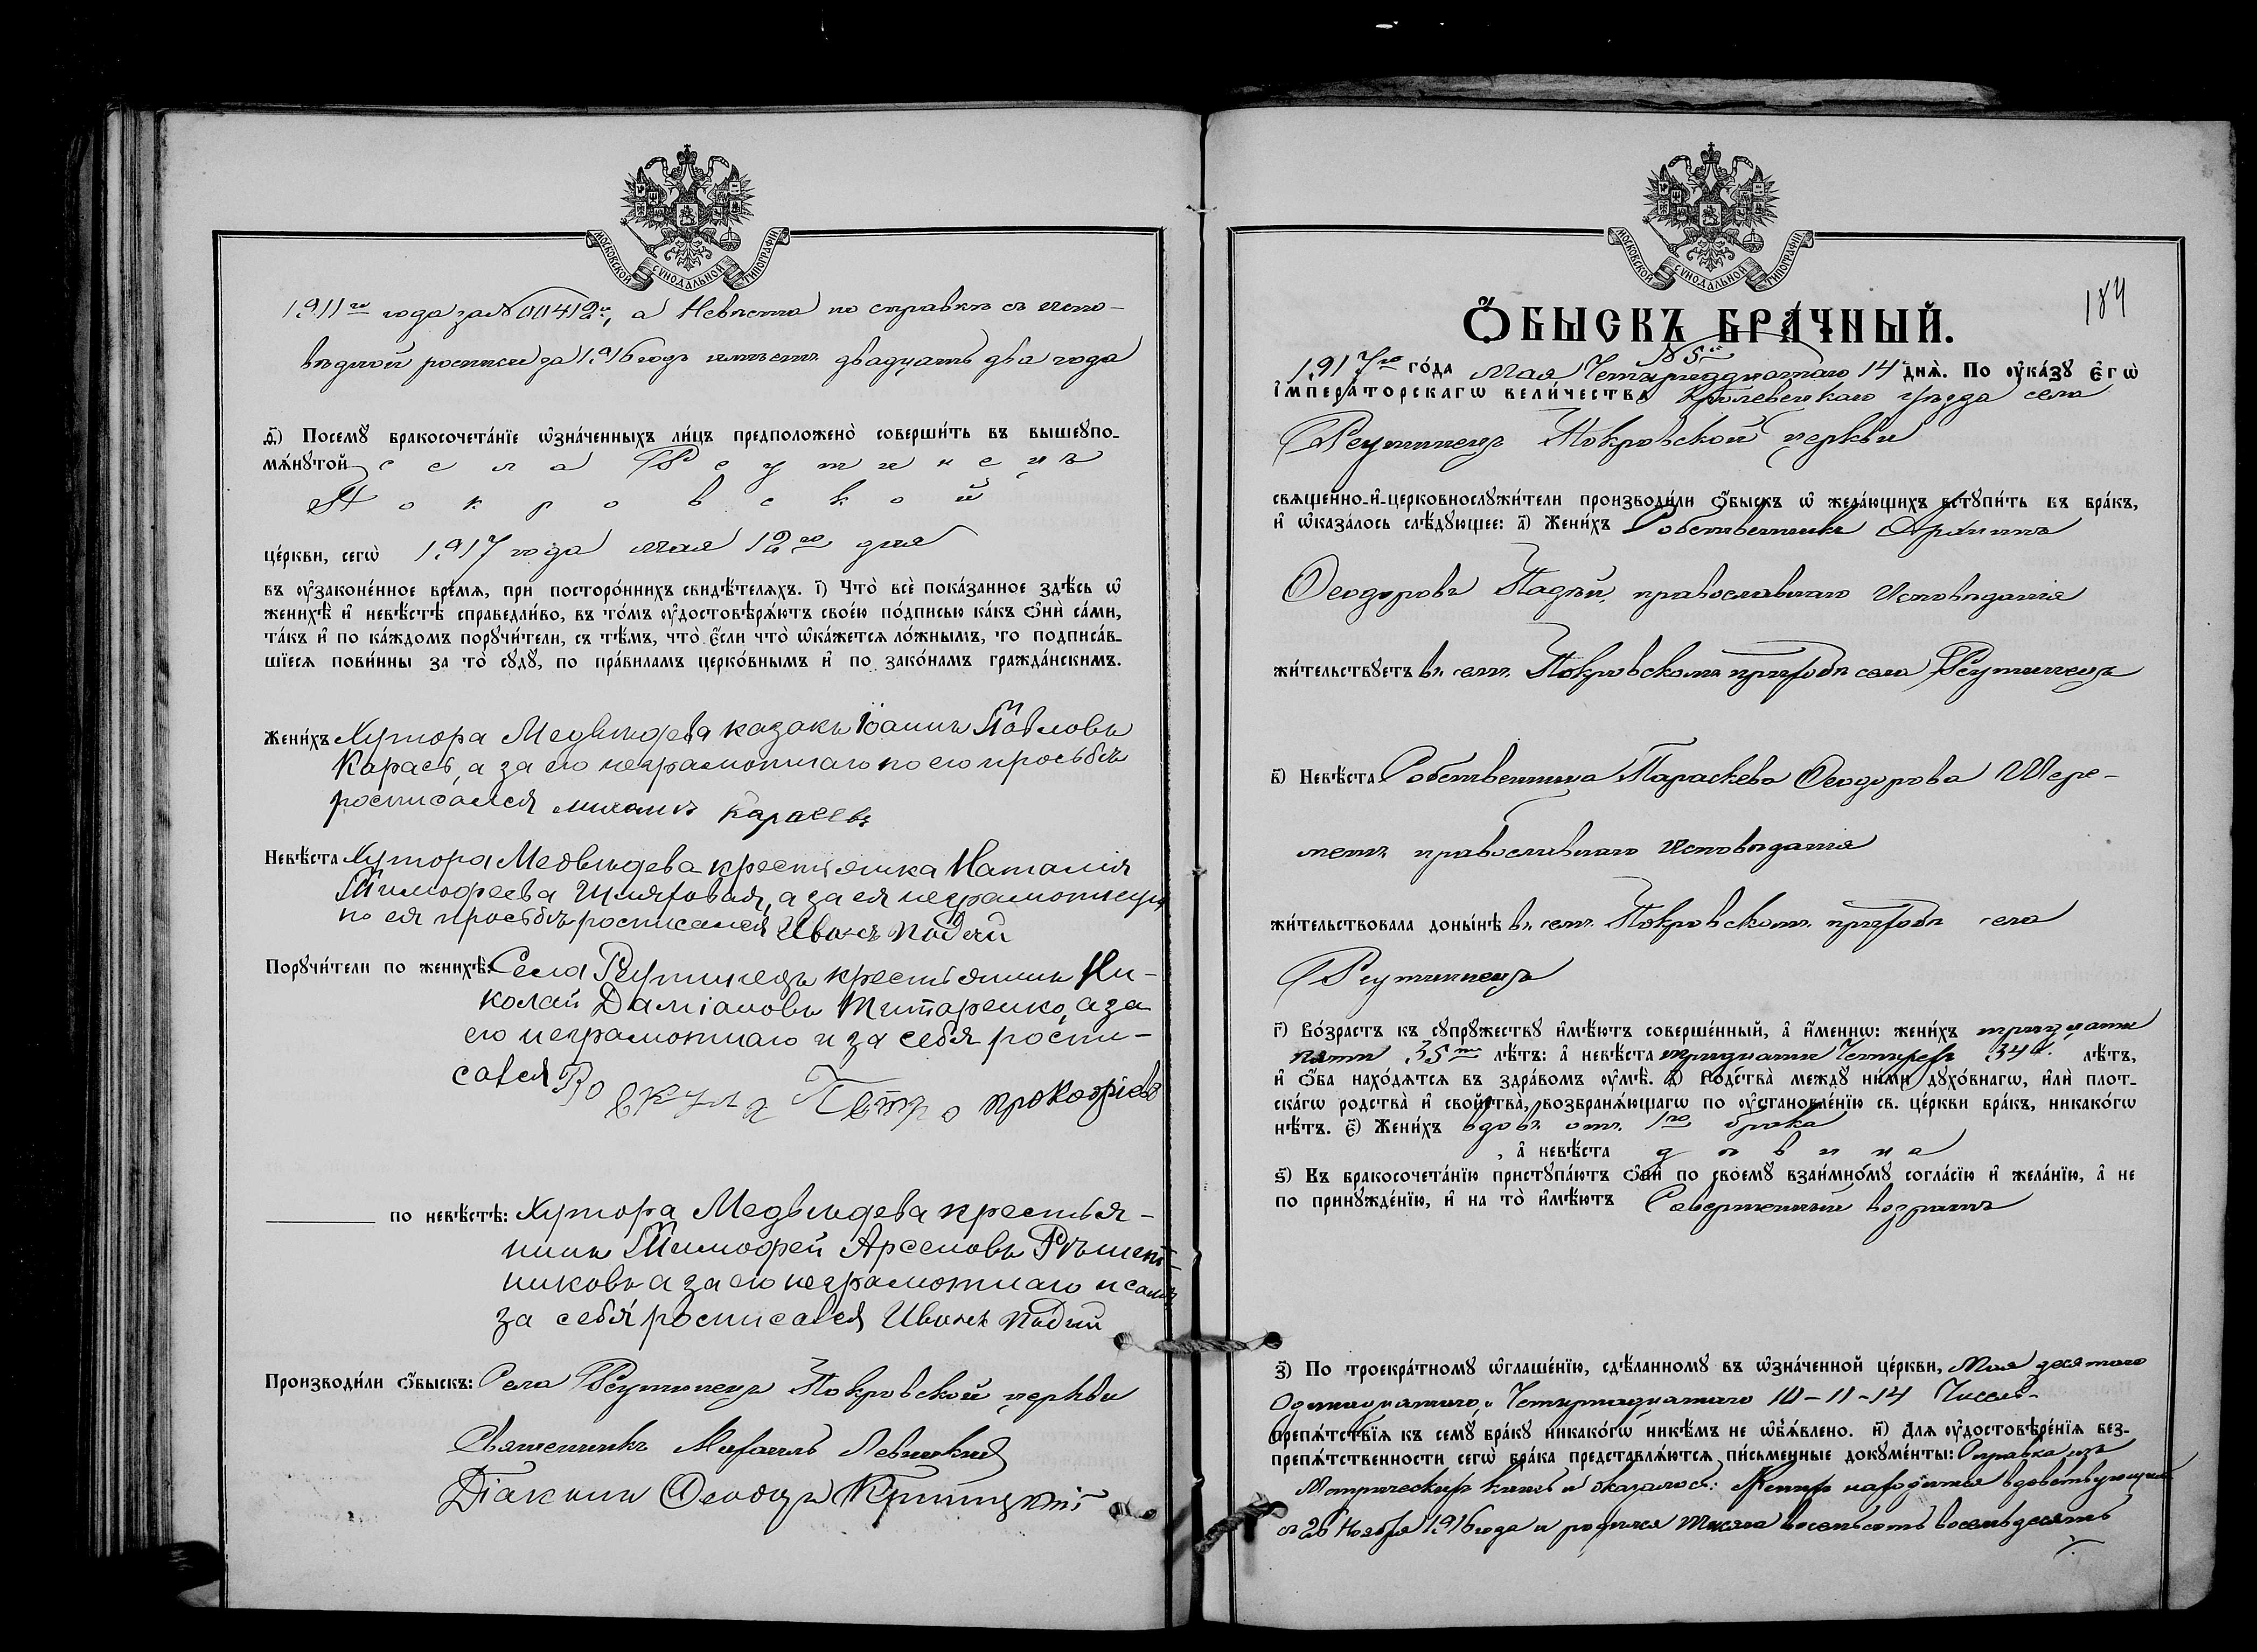 МОСКОВСКОЙ СѴНОДАЛЬНОЙ ТИПОГРАФІИ
1911го года за № 00412м, а Невѣста по справкѣ съ испо-
вѣдной росписи за 1916 годъ имѣетъ двадцать два года
д҃) Посемꙋ бракосочета́нїе ѡ҆зна́ченныхъ ли́цъ предположено̀ соверши́ть въ вышеꙋпо-
мѧ́нꙋтой села Реутинецъ
Покровской
це́ркви, сегѡ̀ 1917 года мая 12го дня
въ ᲂу҆законе́нное вре́мѧ, при посторо́ннихъ свидѣ́телѧхъ. і҃) Что̀ всѐ пока́занное здѣ́сь ѡ҆
женихѣ̀ и҆ невѣ́стѣ справедли́во, въ то́мъ ᲂу҆достовѣрѧ́ютъ свое́ю по́дписью ка́къ ѻ҆нѝ са́ми,
та́къ и҆ по ка́ждомъ порꙋчи́тели, съ тѣ́мъ, что̀ є҆́сли что̀ ѡ҆ка́жетсѧ ло́жнымъ, то подписа́в-
шїесѧ пови́нны за то̀ сꙋдꙋ̀, по пра́виламъ церко́внымъ и҆ по зако́намъ гражда́нскимъ.
Жени́хъ Хутора Медвѣдева казакъ Іоаннъ Павловъ
Карась, а за его неграмотнаго по его просьбѣ
росписался Карасевъ
Невѣ́ста Хутора Медвѣдева крестьянка Наталія
Тимофеева Шляховая, а за ея неграмотную
по ея просьбѣ росписался Иванъ Падей
Порꙋчи́тели по женихѣ̀: Села Реутинецъ крестьянинъ Ни-
колай Даміановъ Титаренко, а за
его неграмотнаго и за себя роспи-
сался Петро Прокофіевъ
по невѣ́стѣ: Хутора Медвѣдева крестья-
нинъ Тимофей Арсеновъ Рѣшет-
никовъ а за его неграмотнаго и самъ
за себя росписался Иванъ Падей
Производи́ли ѻ҆́быскъ: Села Реутинецъ Покровской церкви
Священникъ Михаилъ Левицкій
Діаконъ Ѳеодоръ
МОСКОВСКОЙ СѴНОДАЛЬНОЙ ТИПОГРАФІИ
184
Ѻ҆́БЫСКЪ БРА́ЧНЫЙ.
№ 5й
1917го го́да Мая Четырнадцатаго 14 днѧ̀. По ᲂу҆ка́зꙋ є҆гѡ̀
і҆мпера́торскагѡ вели́чества Кролевецкаго уѣзда села
Реутинецъ Покровской церкви
свѧще́нно-и҆-церковнослꙋжи́тели производи́ли ѻ҆́быскъ ѡ҆ жела́ющихъ встꙋпи́ть въ бра́къ,
и҆ ѡ҆каза́лось слѣ́дꙋющее: а҃) Жени́хъ Собственникъ Архиппъ
Ѳеодоровъ Падей, православнаго Исповѣданія
жи́тельствꙋетъ въ сем. Покровскомъ приходѣ села Реутинецъ
в҃) Невѣ́ста Собственница Параскева Ѳеодорова Шере-
метъ православнаго Исповѣданія
жи́тельствовала доны́нѣ въ сем. Покровскомъ приходѣ села
Реутинецъ
г҃) Во́зрастъ къ сꙋпрꙋ́жествꙋ и҆мѣ́ютъ соверше́нный, а҆ и҆́меннѡ: жени́хъ тридцати
пяти 35ти лѣ́тъ: а҆ невѣ́ста тридцати Четырехъ 34х. лѣ́тъ,
и҆ ѻ҆́ба нахо́дѧтсѧ въ здра́вомъ ᲂу҆мѣ̀. д҃) Родства̀ междꙋ̀ ни́ми дꙋхо́внагѡ, и҆лѝ плот-
ска́гѡ родства̀ и҆ свойства̀, возбранѧ́ющагѡ по ᲂу҆становле́нїю св. це́ркви бра́къ, никако́гѡ
нѣ́тъ. є҃) Жени́хъ вдовъ отъ 1го брака
, а҆ невѣ́ста дѣвица
ѕ҃) Къ бракосочета́нїю пристꙋпа́ютъ ѻ҆нѝ по своемꙋ̀ взаи́мномꙋ согла́сїю и҆ жела́нїю, а҆ не
по принꙋжде́нїю, и҆ на то̀ и҆мѣ́ютъ Совершенный возрастъ
з҃) По троекра́тномꙋ ѡ҆глаше́нїю, сдѣ́ланномꙋ въ ѡ҆зна́ченной це́ркви, Мая десятаго
Одинадцатаго, и Четырнадцатаго 10-11-14 Чиселъ
препѧ́тствїѧ къ семꙋ̀ бра́кꙋ никако́гѡ никѣ́мъ не ѡ҆б̾ѧ́влено. и҃) Длѧ ᲂу҆достовѣре́нїѧ без-
препѧ́тственности сегѡ̀ бра́ка представлѧ́ютсѧ пи́сьменные докꙋме́нты: Справка изъ
Метрическихъ книгъ и оказалось: Женихъ находится вдовствующимъ
съ 26 Ноября 1916 года и родился Тысяча восемьсотъ восемьдесятъ